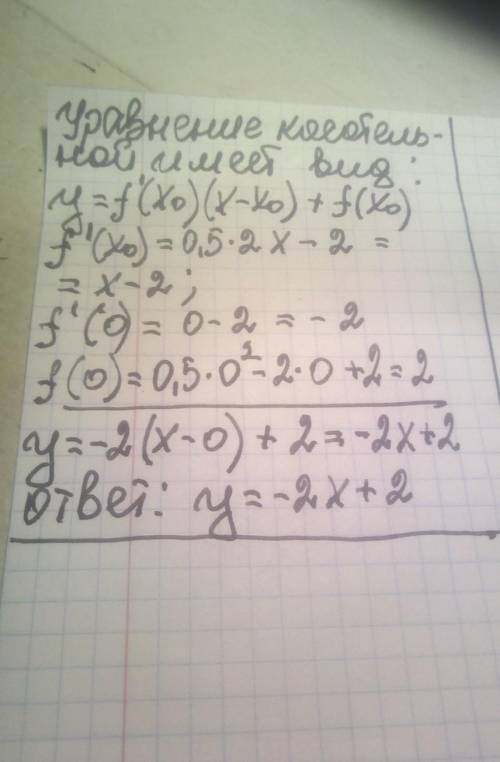 Уравнение касатель-
ной имеет вид:
y = f'(x₀)(x-x₀) + f(x₀)
f'(x₀) = 0,5·2x - 2 =
= x-2;
f'(0) = 0-2 = -2
f(0) = 0,5·0² - 2·0 + 2 = 2
y = -2(x-0) + 2 = -2x+2
ответ: y = -2x+2